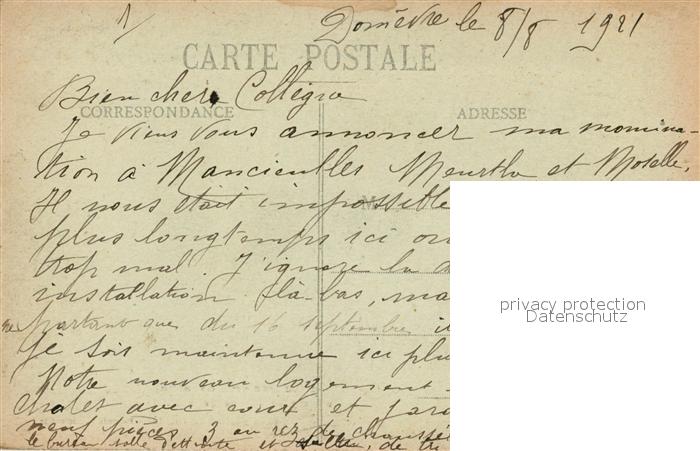 1/ Domèvre le 8/8 1921
CARTE POSTALE
Bien chère Collègue
CORRESPONDANCE
ADRESSE
Je viens vous annoncer ma nomina
tion à Mancieulles Meurthe et Moselle.
Il nous était impossible
plus longtemps ici on
trop mal. J'ignore la d
installation là-bas, ma
ne partant que du 16 septembre il
je sois maintenue ici plu
Notre nouveau logement
chalet avec cour et jard
neuf pièces 3 au rez de chaussé
le bureau salle d'attente et
privacy protection
Datenschutz